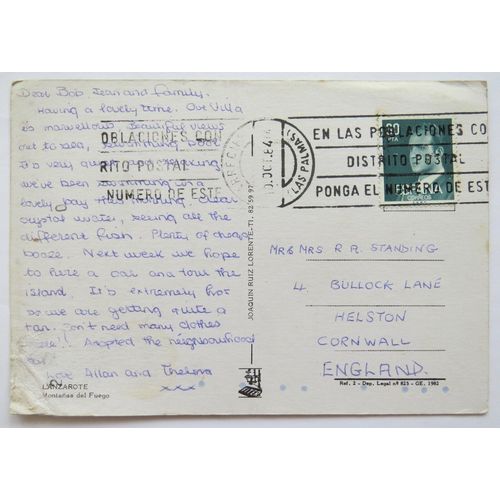 Dear Bob, Jean and family.
Having a lovely time. Our Villa
is marvellous. Beautiful views
out to sea, swimming pool
It's very quiet and relaxing
we've been swimming in a
lovely bay then clear
crystal water, seeing all the
different fish. Plenty of cheap
booze. Next week we hope
to hire a car and tour the
island. It's extremely hot
so we are getting quite a
tan. Don't need many clothes
here!! Adopted the neighbourhood
cat!
Love Allan and Thelma
xxx
LANZAROTE
Montañas del Fuego
OBLACIONES CON
RITO POSTAL
NUMERO DE ESTE
ARRECIFE
OCT. 84
(LAS PALMAS)
EN LAS POBLACIONES CO
DISTRITO POSTAL
PONGA EL NUMERO DE EST
PTA
CORREOS
JOAQUIN RUIZ LORENTE-TI. 82 59 97
MR & MRS R A STANDING
4 BULLOCK LANE
HELSTON
CORNWALL
ENGLAND.
Ref. 2 - Dep. Legal nº 825 - GE. 1982